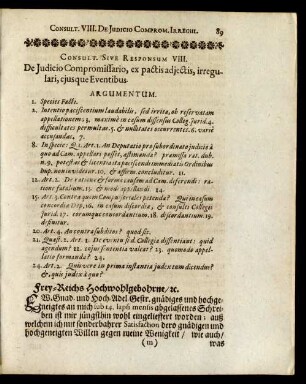 CONSULT. VIII. DE JUDICIO COMPROM. IRREGHI. 89
CONSULT. SIVE RESPONSUM VIII.
De Judicio Compromissario, ex pactis adjectis, irregu-
lari, ejusque Eventibus.
ARGUMENTUM.
1. Species Facti.
2. Intentio paciscentium laudabilis, sed irrita, ob reservatam
appellationem: 3. maximè in casum dissensus Colleg. jurid. 4.
difficultates permultae. 5. & nullitates occurrentes. 6. variè
accusandae. 7.
8. In specie: Q. 1. Art. 1. An Deputatio pro subordinato judicio à
quo ad Cam. appellari possit, affirmatur? praemissis rat. dub.
9. potestas & licentia ita paciscendi immediatis Ordinibus
Imp. non invidetur. 10. & affirm. concluditur. 11.
12. Art. 2. De ratione & forma causam ad Cam. deferendi: ra-
tione fatalium. 13. & modi appellandi. 14
15. Art. 3. Contra quem Compars talis petenda? Qui in casum
concordiae Dnp. 16. in casum discordiae, & consulti Collegii
jurid. 17. eorumque concordantium. 18. discordantium. 19.
definitur.
20. Art. 4. An contra subditos? quod sic.
21. Quaest. 2. Art. 1. De eventu si d. Collegia dissentiant: quid
agendum? 22. cujus sententia valeat? 23. quomodo appel-
latio formanda? 24.
24. Art. 2. Quis verè in prima instantia judex tum dicendus?
& quis judex à quo?
Frey-Reichs Hochwohlgebohrne/ &c.
EW. Gnad. und Hoch-Adel. Gestr. gnädiges und hochge-
neigtes an mich sub 14. lapsi mensis abgelassenes Schrei-
ben ist mir jüngsthin wohl eingelieffert worden: auß
welchem ich mit sonderbahrer Satisfaction dero gnädigen und
hochgeneigten Willen gegen meine Wenigkeit/ wie auch/
(m) was